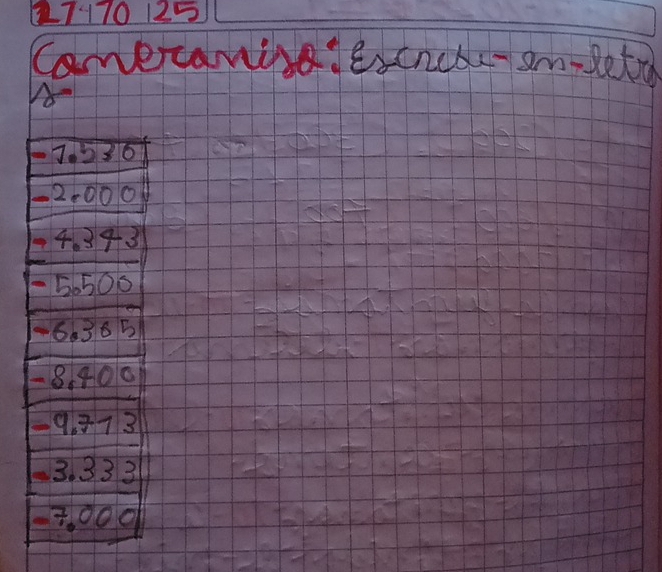 27-10 25
Comeramisa: Escribi-en-letra
s-
-1.530
-2.000
-4.343
-5.500
-6.365
-8.400
-9.713
-3.333
-7.000